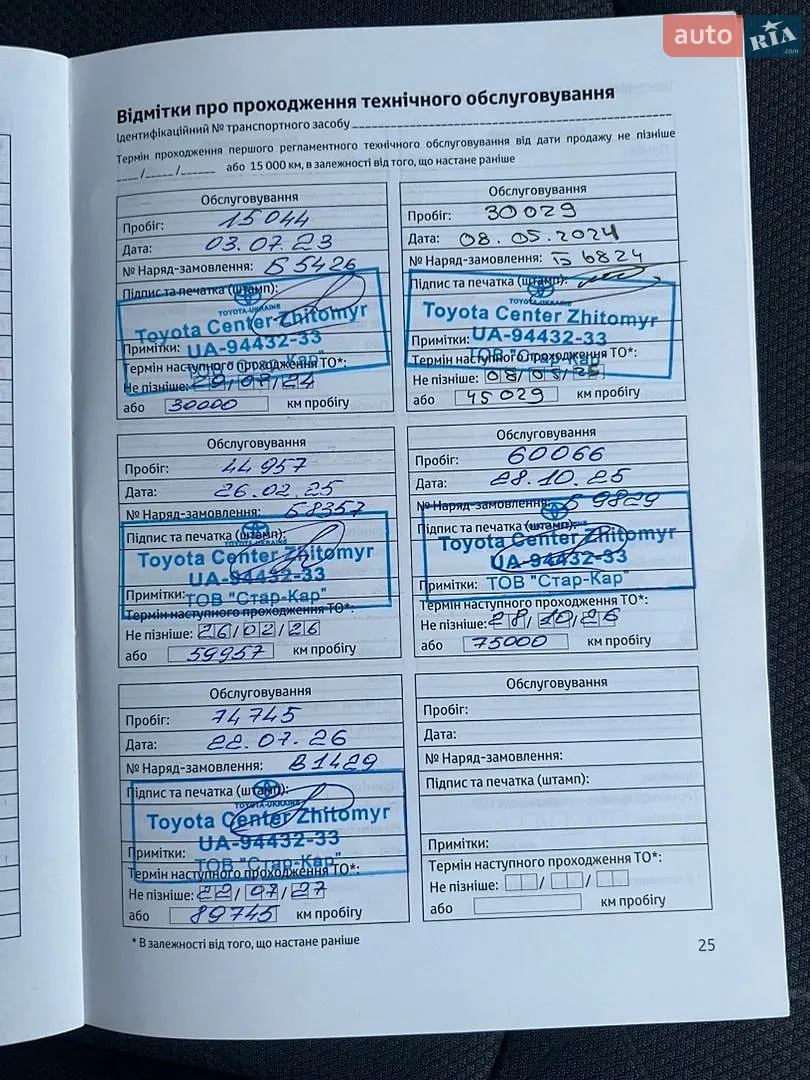 auto RIA
.com
Відмітки про проходження технічного обслуговування
Ідентифікаційний № транспортного засобу
Термін проходження першого регламентного технічного обслуговування від дати продажу не пізніше
____/_____/______ або 15 000 км, в залежності від того, що настане раніше
Обслуговування
Пробіг: 15044
Дата: 03.07.23
№ Наряд-замовлення: Б 5426
Підпис та печатка (штамп):
TOYOTA-UKRAINE
Toyota Center Zhitomyr
UA-94432-33
ТОВ "Стар-Кар"
Примітки:
Термін наступного проходження ТО*:
Не пізніше: /08/24
або 30000 км пробігу
Обслуговування
Пробіг: 30029
Дата: 08.05.2024
№ Наряд-замовлення: Б 6824
Підпис та печатка (штамп):
TOYOTA-UKRAINE
Toyota Center Zhitomyr
UA-94432-33
ТОВ "Стар-Кар"
Примітки:
Термін наступного проходження ТО*:
Не пізніше: 08/05/25
або 45029 км пробігу
Обслуговування
Пробіг: 44957
Дата: 26.02.25
№ Наряд-замовлення: Б8357
Підпис та печатка (штамп):
Toyota Center Zhitomyr
UA-94432-33
ТОВ "Стар-Кар"
Примітки:
Термін наступного проходження ТО*:
Не пізніше: 26/02/26
або 59957 км пробігу
Обслуговування
Пробіг: 60066
Дата: 28.10.25
№ Наряд-замовлення: Б 9829
Підпис та печатка (штамп):
Toyota Center Zhitomyr
UA-94432-33
ТОВ "Стар-Кар"
Примітки:
Термін наступного проходження ТО*:
Не пізніше: 28/10/26
або 75000 км пробігу
Обслуговування
Пробіг: 74745
Дата: 22.07.26
№ Наряд-замовлення: В1429
Підпис та печатка (штамп):
TOYOTA-UKRAINE
Toyota Center Zhitomyr
UA-94432-33
ТОВ "Стар-Кар"
Примітки:
Термін наступного проходження ТО*:
Не пізніше: 22/07/27
або 89745 км пробігу
Обслуговування
Пробіг:
Дата:
№ Наряд-замовлення:
Підпис та печатка (штамп):
Примітки:
Термін наступного проходження ТО*:
Не пізніше: / /
або км пробігу
* В залежності від того, що настане раніше
25